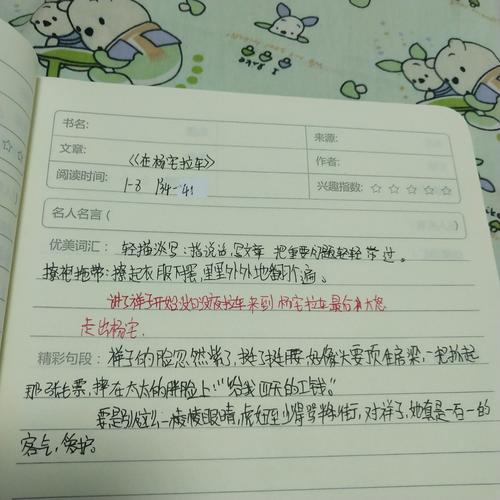 书名:
来源:
文章: 《在杨宅拉车》
作者:
阅读时间: 1-8 134-41
兴趣指数: ☆ ☆ ☆ ☆ ☆
名人名言 (
优美词汇: 轻描淡写: 指说话写文章 把重要问题轻轻带过。
撩袍拖带: 撩起衣服下摆, 里里外外地翻个遍。
讲了祥子开始 拉车来到杨宅拉车最后
走出杨宅.
精彩句段: 祥子的脸忽然紫了, 挺了挺腰 好像头要顶住房梁, 一把抓起
那张毛票, 摔在太太的胖脸上: "给我四天的工钱。"
要是别人这么一棱棱眼睛, 虎妞至少得骂半条街, 对祥子, 她真是一百一的
客气, 爱护。